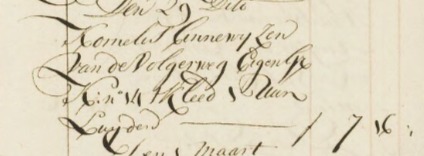 Den 29 Dito
Kornelis Sinnewÿ Zen
Van de Volgerweg Eigen Gr
K: no 14 1 Kleed 1 Uur
Luÿden 1 7 16:
Den 1 Maart